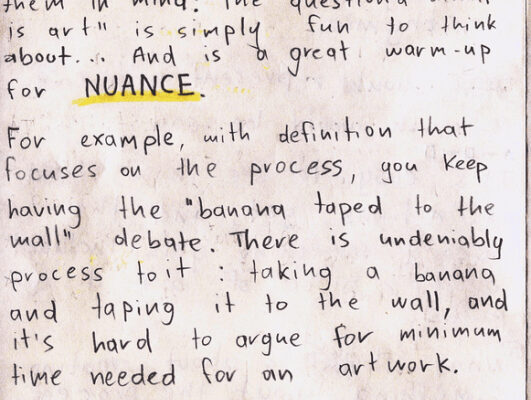 them in mind. The question
is art" is simply fun to think
about... And is a great warm-up
for NUANCE.
For example, with definition that
focuses on the process, you keep
having the "banana taped to the
wall" debate. There is undeniably
process to it : taking a banana
and taping it to the wall, and
it's hard to argue for minimum
time needed for an artwork.